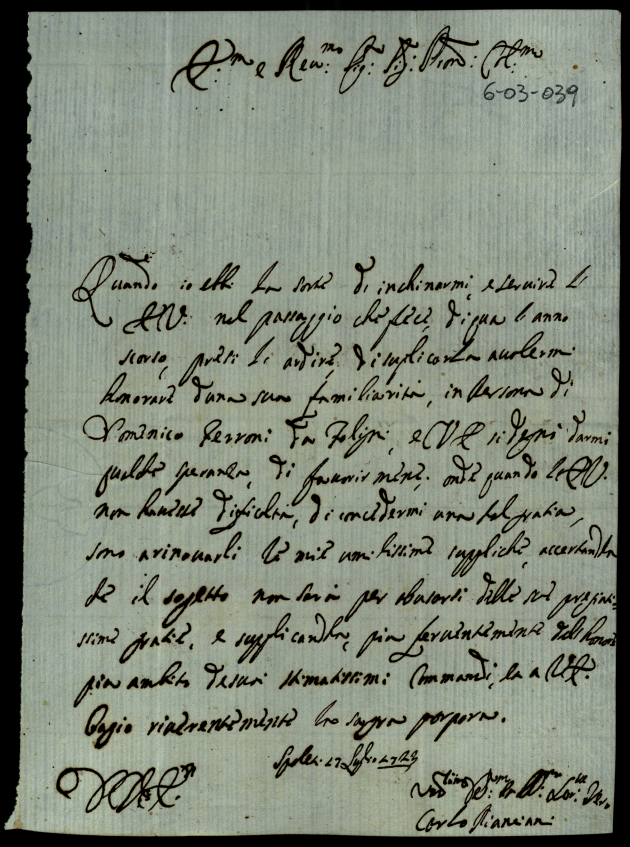 E.mo e Reu.mo Sig.
6-03-039
Quando io ebbi la sorte di inchinarmi, e servire l'
E.V. nel passaggio che fece, di qua l'anno
scorso, presi l'ardire, di suplicarla a volermi
honorare d'una sua familiarità, in Persona di
Domenico Ferroni da Foligni, e V.E. si degnò darmi
qualche speranza, di favorirmene, onde quando l'E.V.
non havesse dificoltà, di concedermi una tal gratia,
sono a rinovarli le mie umilissime suppliche, accertandola
che il sogetto non sarà per abusarsi delle sue pregiatis
sime gratie, e supplicandola, più ferventemente dell'honore
più ambito de suoi stimatissimi Commandi, la a V.E.
bagio riverentemente la sagra porpora.
Spoleti 27 Luglio 1723
Carlo Pianciani